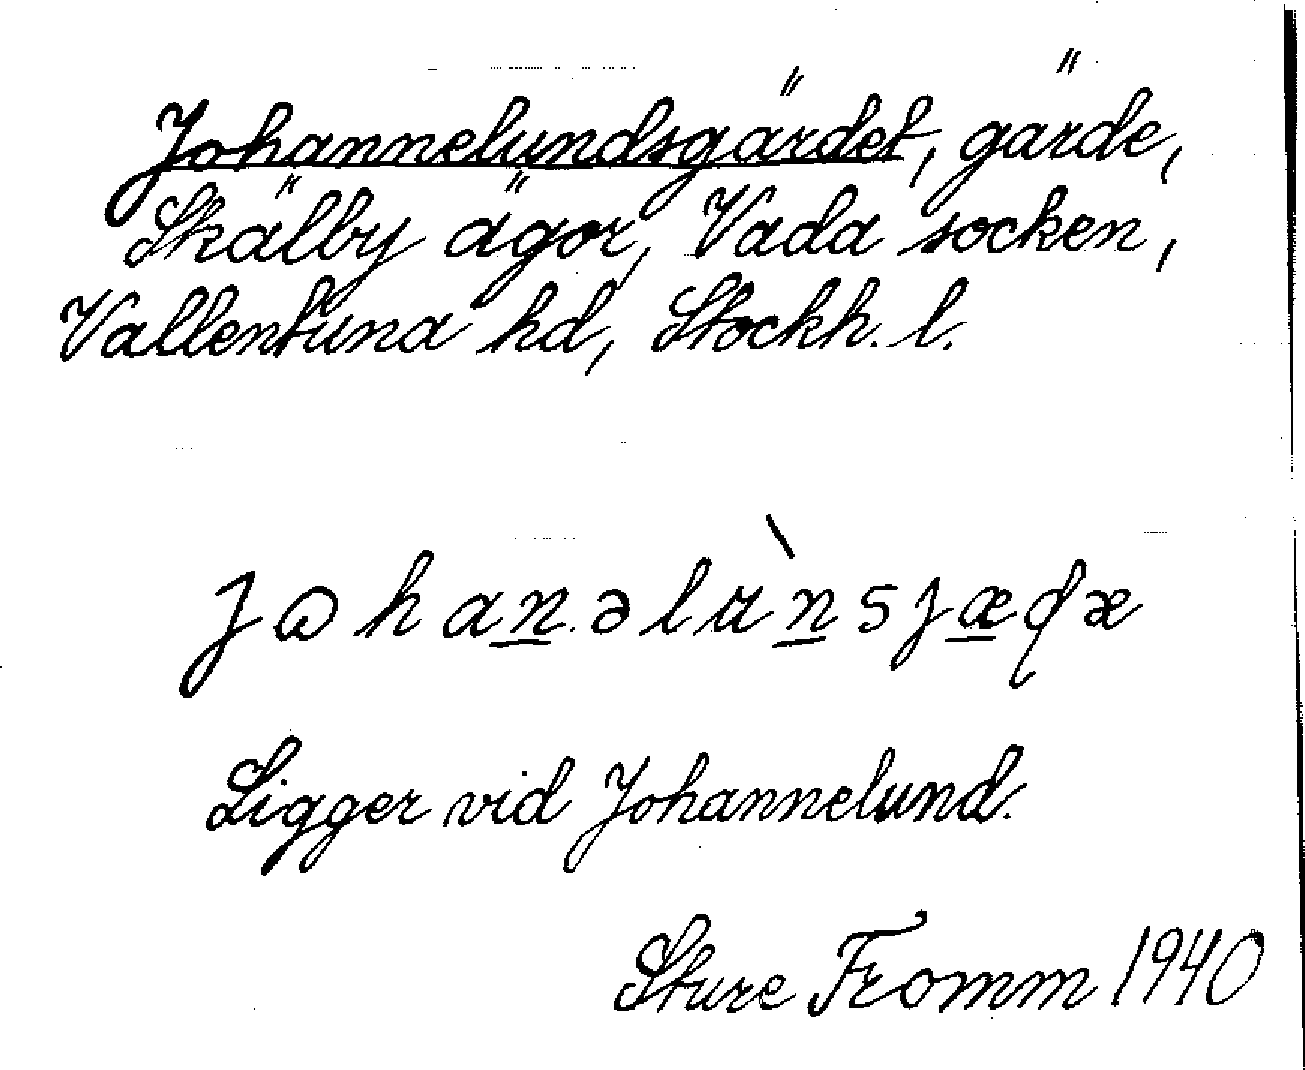 Johannelundsgärdet, gärde,
Skälby ägor, Vada socken,
Vallentuna hd, Stockh. l.
jɷhanəlu̇̀nsjæɖæ
Ligger vid Johannelund.
Sture Fromm 1940